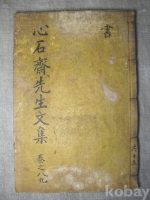 書
心石齋先生文集
卷之八九
kobay